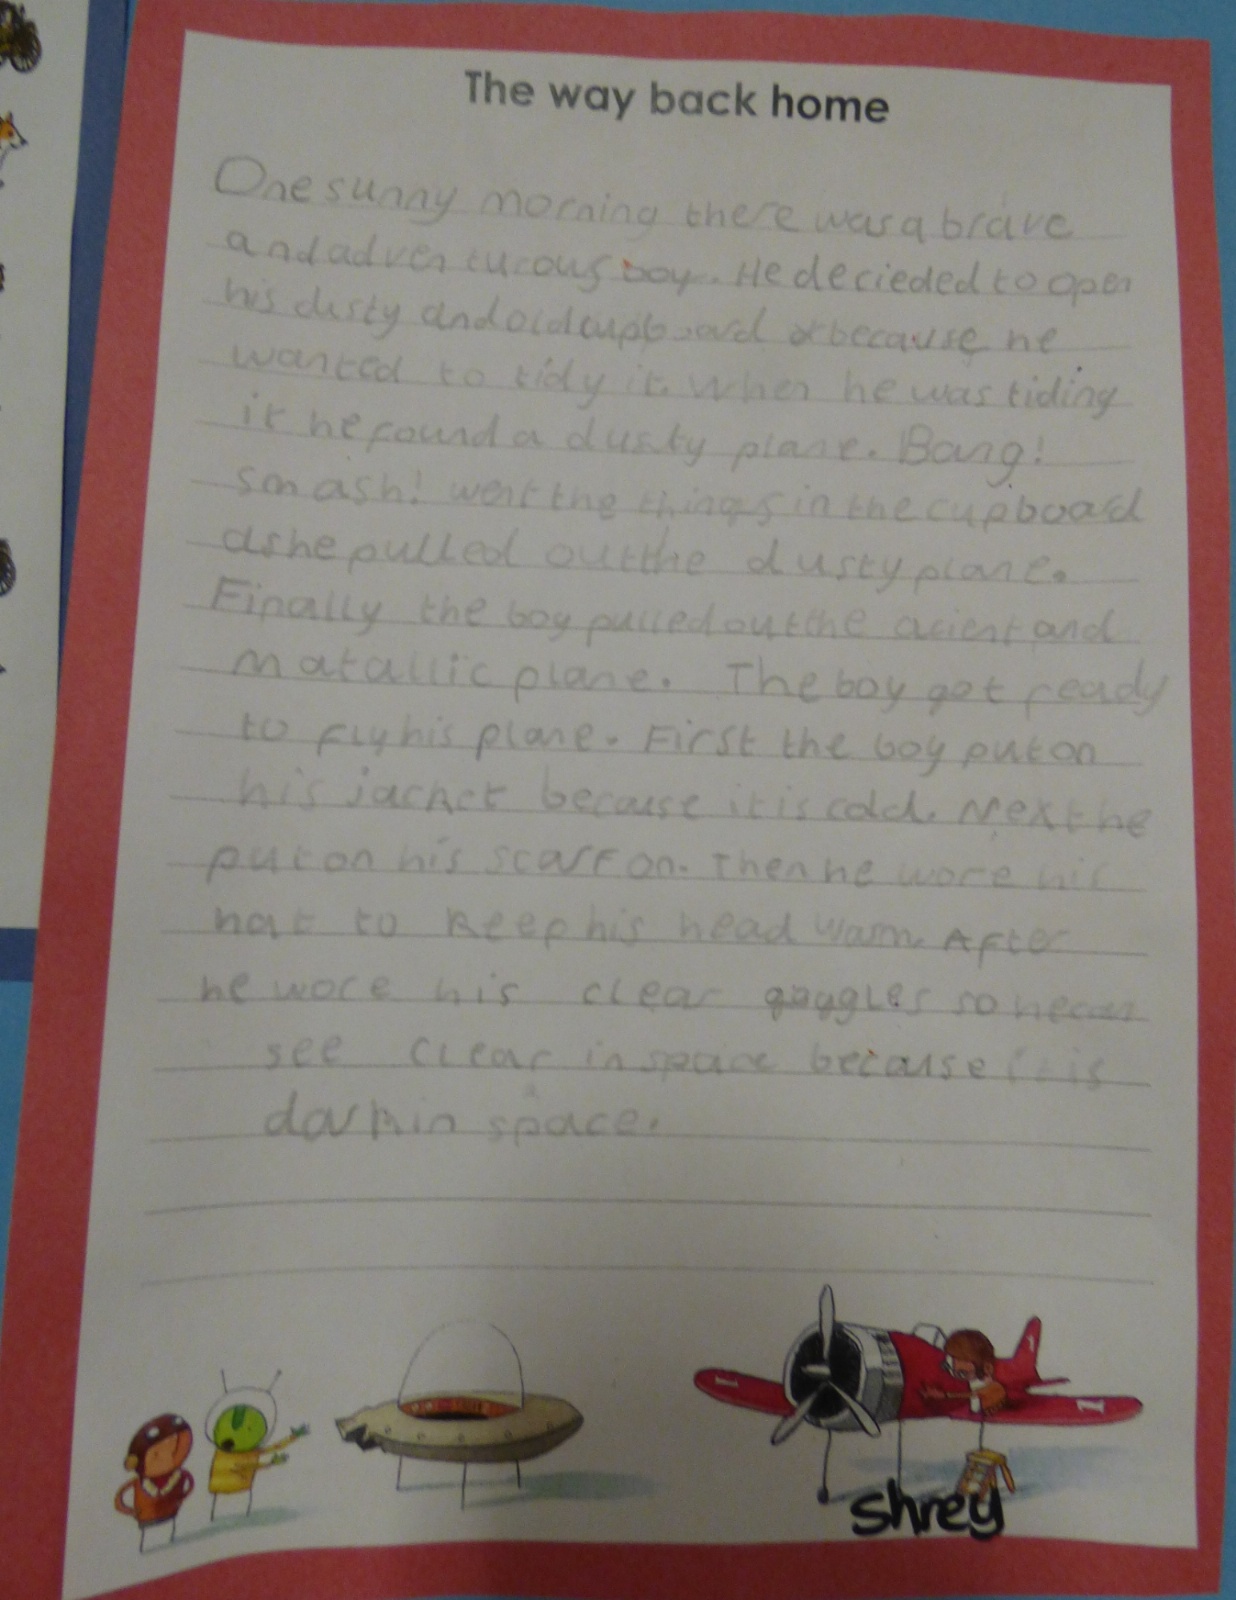 The way back home
One sunny morning there was a brave
and adventurous boy. He decieded to open
his dusty and old cupboard because he
wanted to tidy it. When he was tiding
it he found a dusty plane. Bang!
smash! went the things in the cupboard
as he pulled out the dusty plane.
Finally the boy pulled out the acient and
matallic plane. The boy got ready
to fly his plane. First the boy put on
his jacket because it is cold. Next he
put on his scarf on. Then he wore his
hat to keep his head warm. After
he wore his clear goggles so he can
see clear in space because it is
dark in space.
1
1
1
shrey